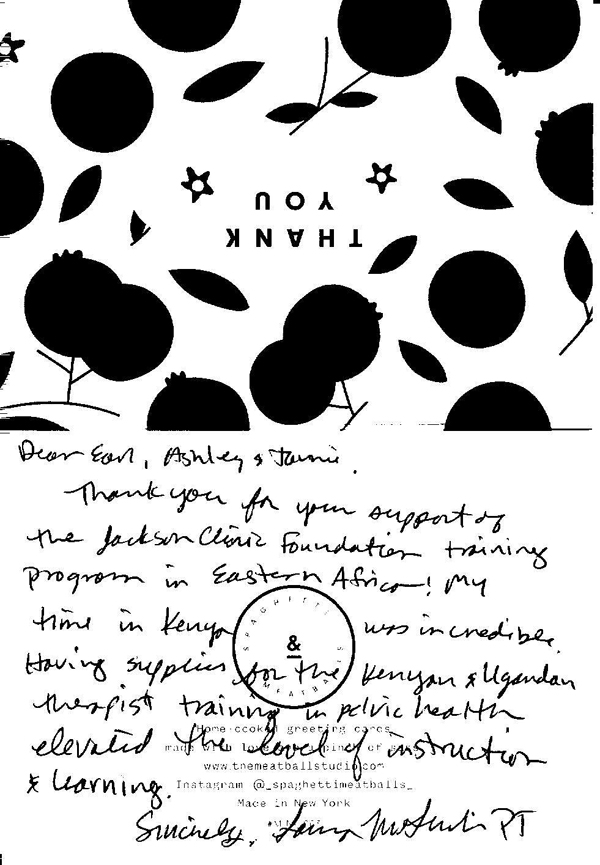 THANK
YOU
Dear Earl, Ashley & Jamie.
Thank you for your support of
the Jackson Clinic Foundation training
program in Eastern Africa! My
time in Kenya was incredible.
SPAGHETTI
&
MEATBALLS
Having supplies for the Kenyan & Ugandan
therapist training in pelvic health
elevated the level of instruction
& learning.
Home-cooked greeting cards
made with love
www.themeatballstudio.com
Instagram @_spaghettimeatballs_
Made in New York
Sincerely, PT